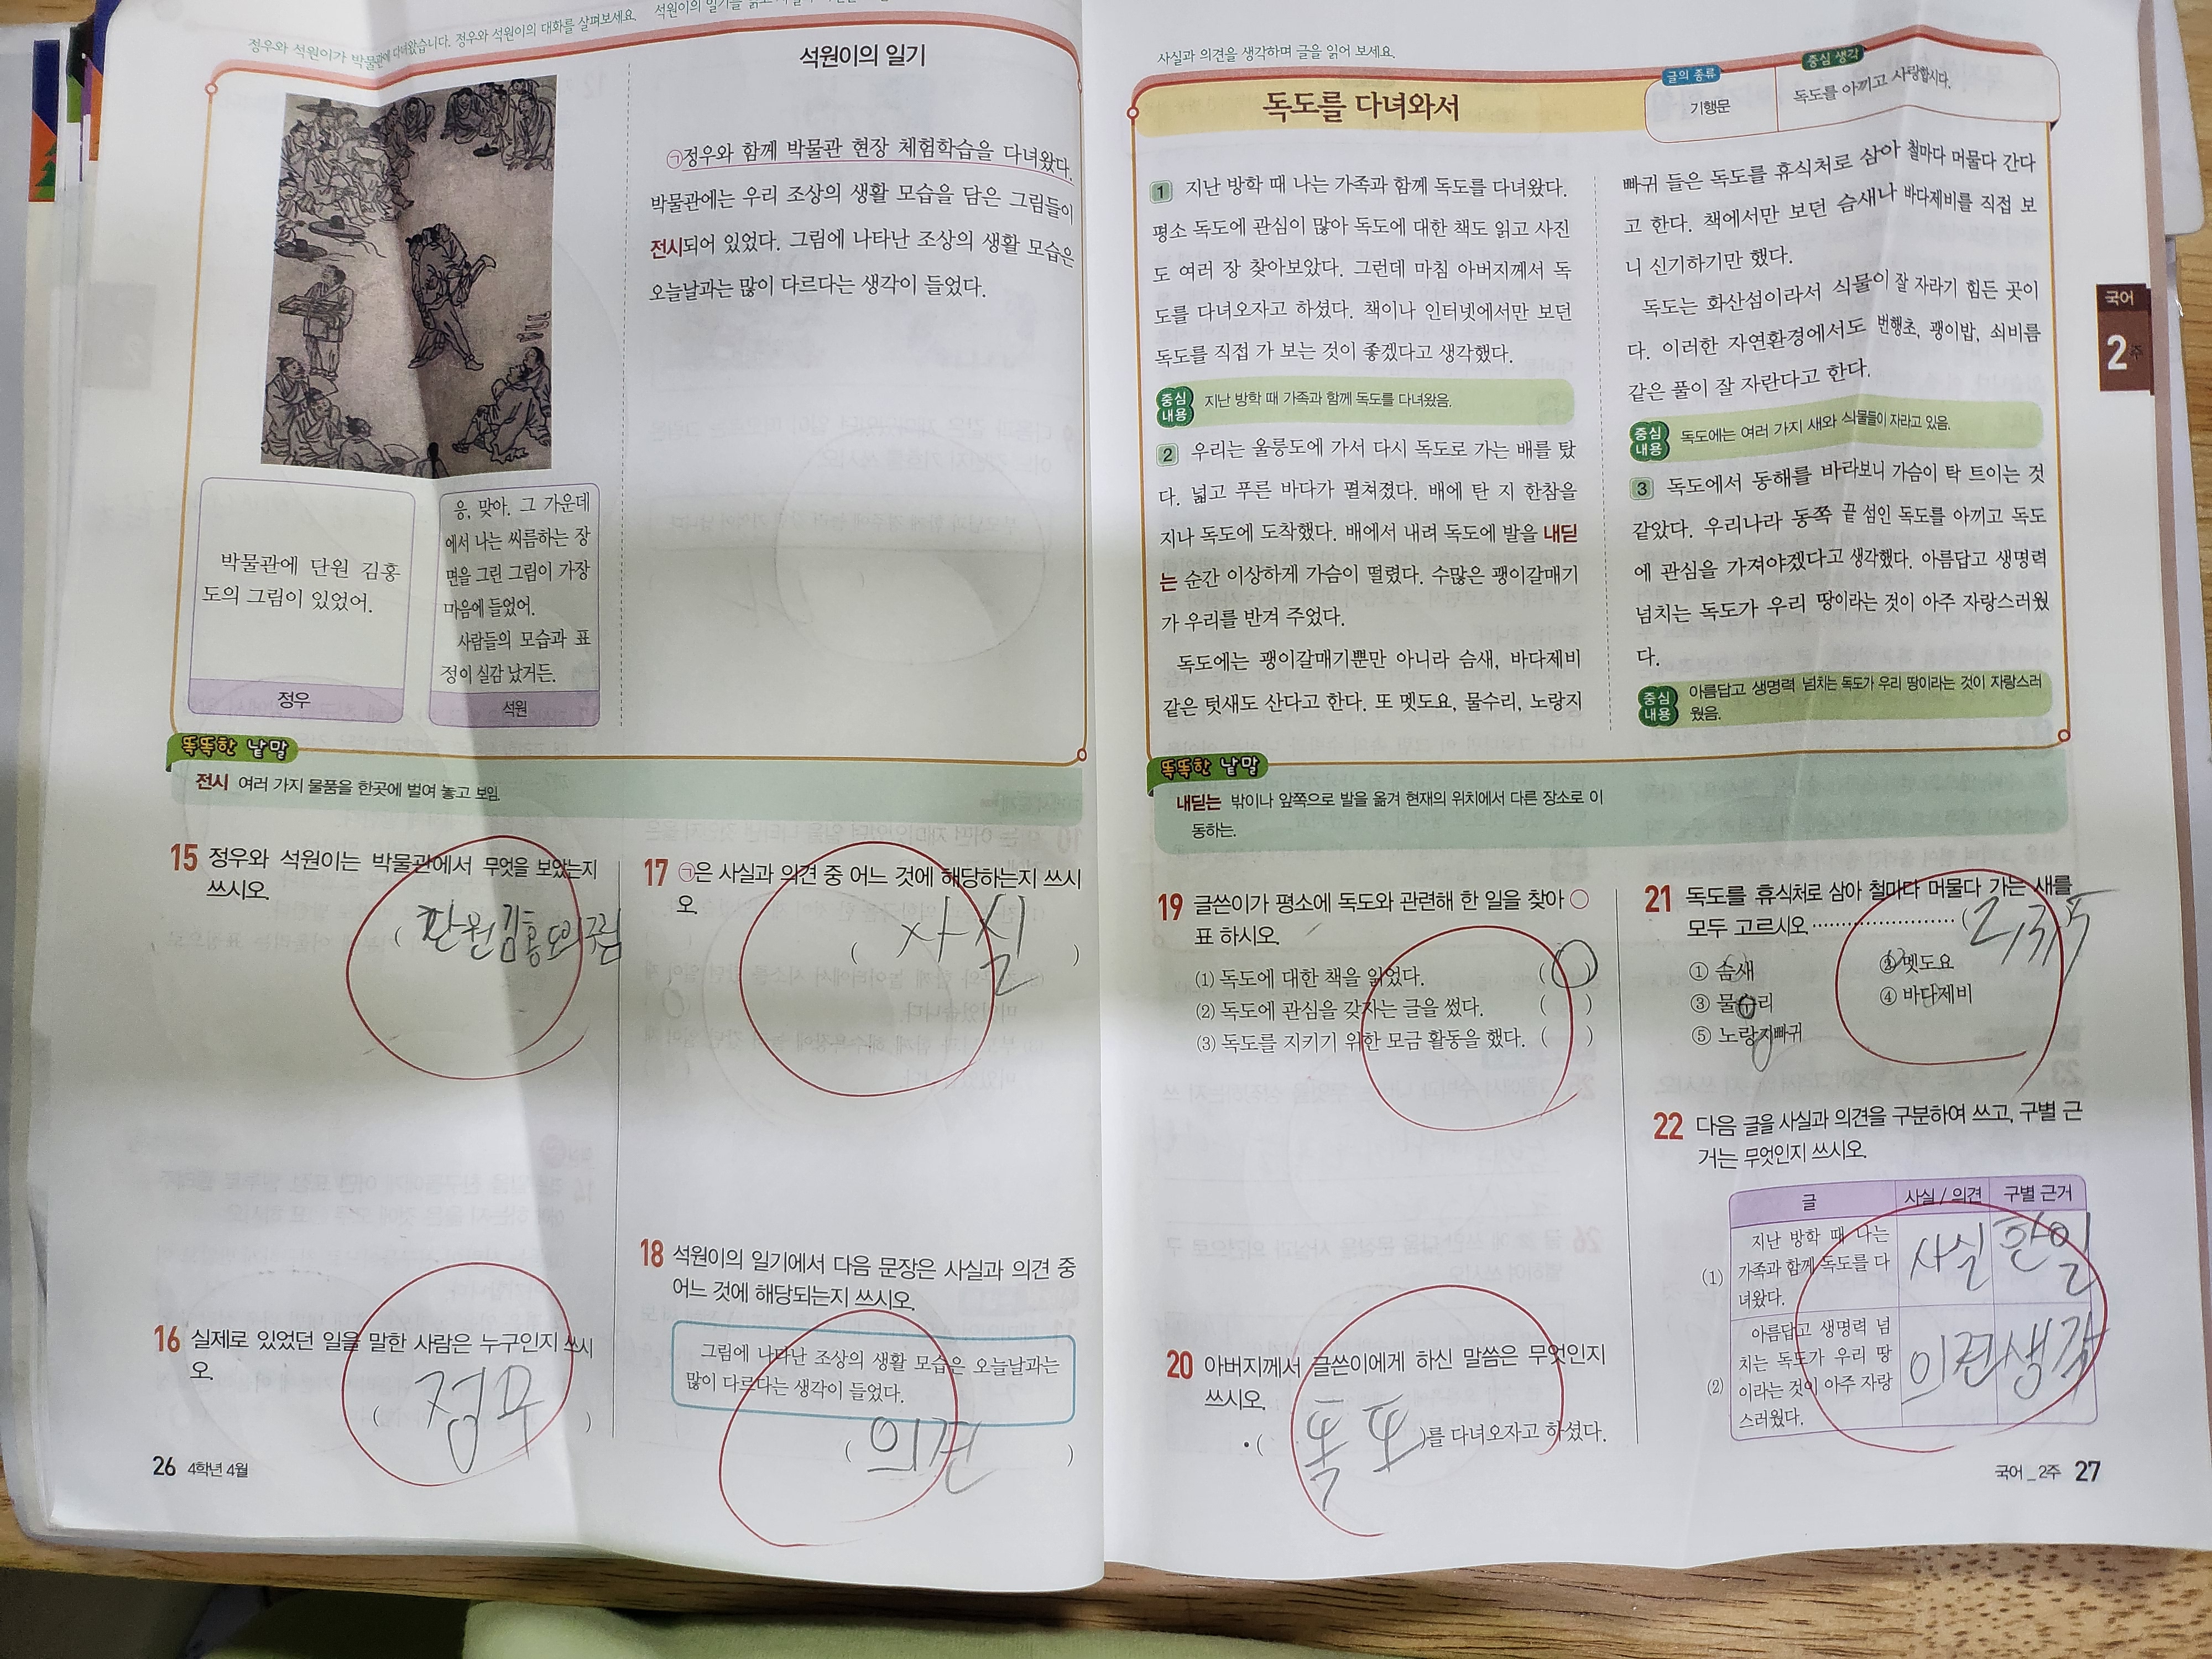 정우와 석원이가 박물관에 다녀왔습니다. 정우와 석원이의 대화를 살펴보세요.
석원이의 일기
㉠정우와 함께 박물관 현장 체험학습을 다녀왔다.
박물관에는 우리 조상의 생활 모습을 담은 그림들이
전시되어 있었다. 그림에 나타난 조상의 생활 모습은
오늘날과는 많이 다르다는 생각이 들었다.
박물관에 단원 김홍
도의 그림이 있었어.
정우
응, 맞아. 그 가운데
에서 나는 씨름하는 장
면을 그린 그림이 가장
마음에 들었어.
사람들의 모습과 표
정이 실감 났거든.
석원
똑똑한 낱말
전시 여러 가지 물품을 한곳에 벌여 놓고 보임.
15 정우와 석원이는 박물관에서 무엇을 보았는지
쓰시오.
( 단원김홍도의그림
16 실제로 있었던 일을 말한 사람은 누구인지 쓰시
오.
( 정우 )
17 ㉠은 사실과 의견 중 어느 것에 해당하는지 쓰시
오.
( 사실 )
18 석원이의 일기에서 다음 문장은 사실과 의견 중
어느 것에 해당되는지 쓰시오.
그림에 나타난 조상의 생활 모습은 오늘날과는
많이 다르다는 생각이 들었다.
( 의견 )
26 4학년 4월
사실과 의견을 생각하며 글을 읽어 보세요.
독도를 다녀와서
글의 종류
기행문
중심 생각
독도를 아끼고 사랑합시다.
1 지난 방학 때 나는 가족과 함께 독도를 다녀왔다.
평소 독도에 관심이 많아 독도에 대한 책도 읽고 사진
도 여러 장 찾아보았다. 그런데 마침 아버지께서 독
도를 다녀오자고 하셨다. 책이나 인터넷에서만 보던
독도를 직접 가 보는 것이 좋겠다고 생각했다.
중심 내용 지난 방학 때 가족과 함께 독도를 다녀왔음.
2 우리는 울릉도에 가서 다시 독도로 가는 배를 탔
다. 넓고 푸른 바다가 펼쳐졌다. 배에 탄 지 한참을
지나 독도에 도착했다. 배에서 내려 독도에 발을 내딛
는 순간 이상하게 가슴이 떨렸다. 수많은 괭이갈매기
가 우리를 반겨 주었다.
독도에는 괭이갈매기뿐만 아니라 슴새, 바다제비
같은 텃새도 산다고 한다. 또 멧도요, 물수리, 노랑지
빠귀 들은 독도를 휴식처로 삼아 철마다 머물다 간다
고 한다. 책에서만 보던 슴새나 바다제비를 직접 보
니 신기하기만 했다.
독도는 화산섬이라서 식물이 잘 자라기 힘든 곳이
다. 이러한 자연환경에서도 번행초, 괭이밥, 쇠비름
같은 풀이 잘 자란다고 한다.
중심 내용 독도에는 여러 가지 새와 식물들이 자라고 있음.
3 독도에서 동해를 바라보니 가슴이 탁 트이는 것
같았다. 우리나라 동쪽 끝 섬인 독도를 아끼고 독도
에 관심을 가져야겠다고 생각했다. 아름답고 생명력
넘치는 독도가 우리 땅이라는 것이 아주 자랑스러웠
다.
중심 내용 아름답고 생명력 넘치는 독도가 우리 땅이라는 것이 자랑스러
웠음.
똑똑한 낱말
내딛는 밖이나 앞쪽으로 발을 옮겨 현재의 위치에서 다른 장소로 이
동하는.
19 글쓴이가 평소에 독도와 관련해 한 일을 찾아 ○
표 하시오.
(1) 독도에 대한 책을 읽었다. ( ○ )
(2) 독도에 관심을 갖자는 글을 썼다. ( )
(3) 독도를 지키기 위한 모금 활동을 했다. ( )
20 아버지께서 글쓴이에게 하신 말씀은 무엇인지
쓰시오.
• ( 독도 )를 다녀오자고 하셨다.
21 독도를 휴식처로 삼아 철마다 머물다 가는 새를
모두 고르시오. ( 2,3,5
① 슴새 ② 멧도요
③ 물수리 ④ 바다제비
⑤ 노랑지빠귀
22 다음 글을 사실과 의견을 구분하여 쓰고, 구별 근
거는 무엇인지 쓰시오.
글 사실 / 의견 구별 근거
(1) 지난 방학 때 나는
가족과 함께 독도를 다
녀왔다.
사실 한일
(2) 아름답고 생명력 넘
치는 독도가 우리 땅
이라는 것이 아주 자랑
스러웠다.
의견 생각
국어_2주 27
국어
2주